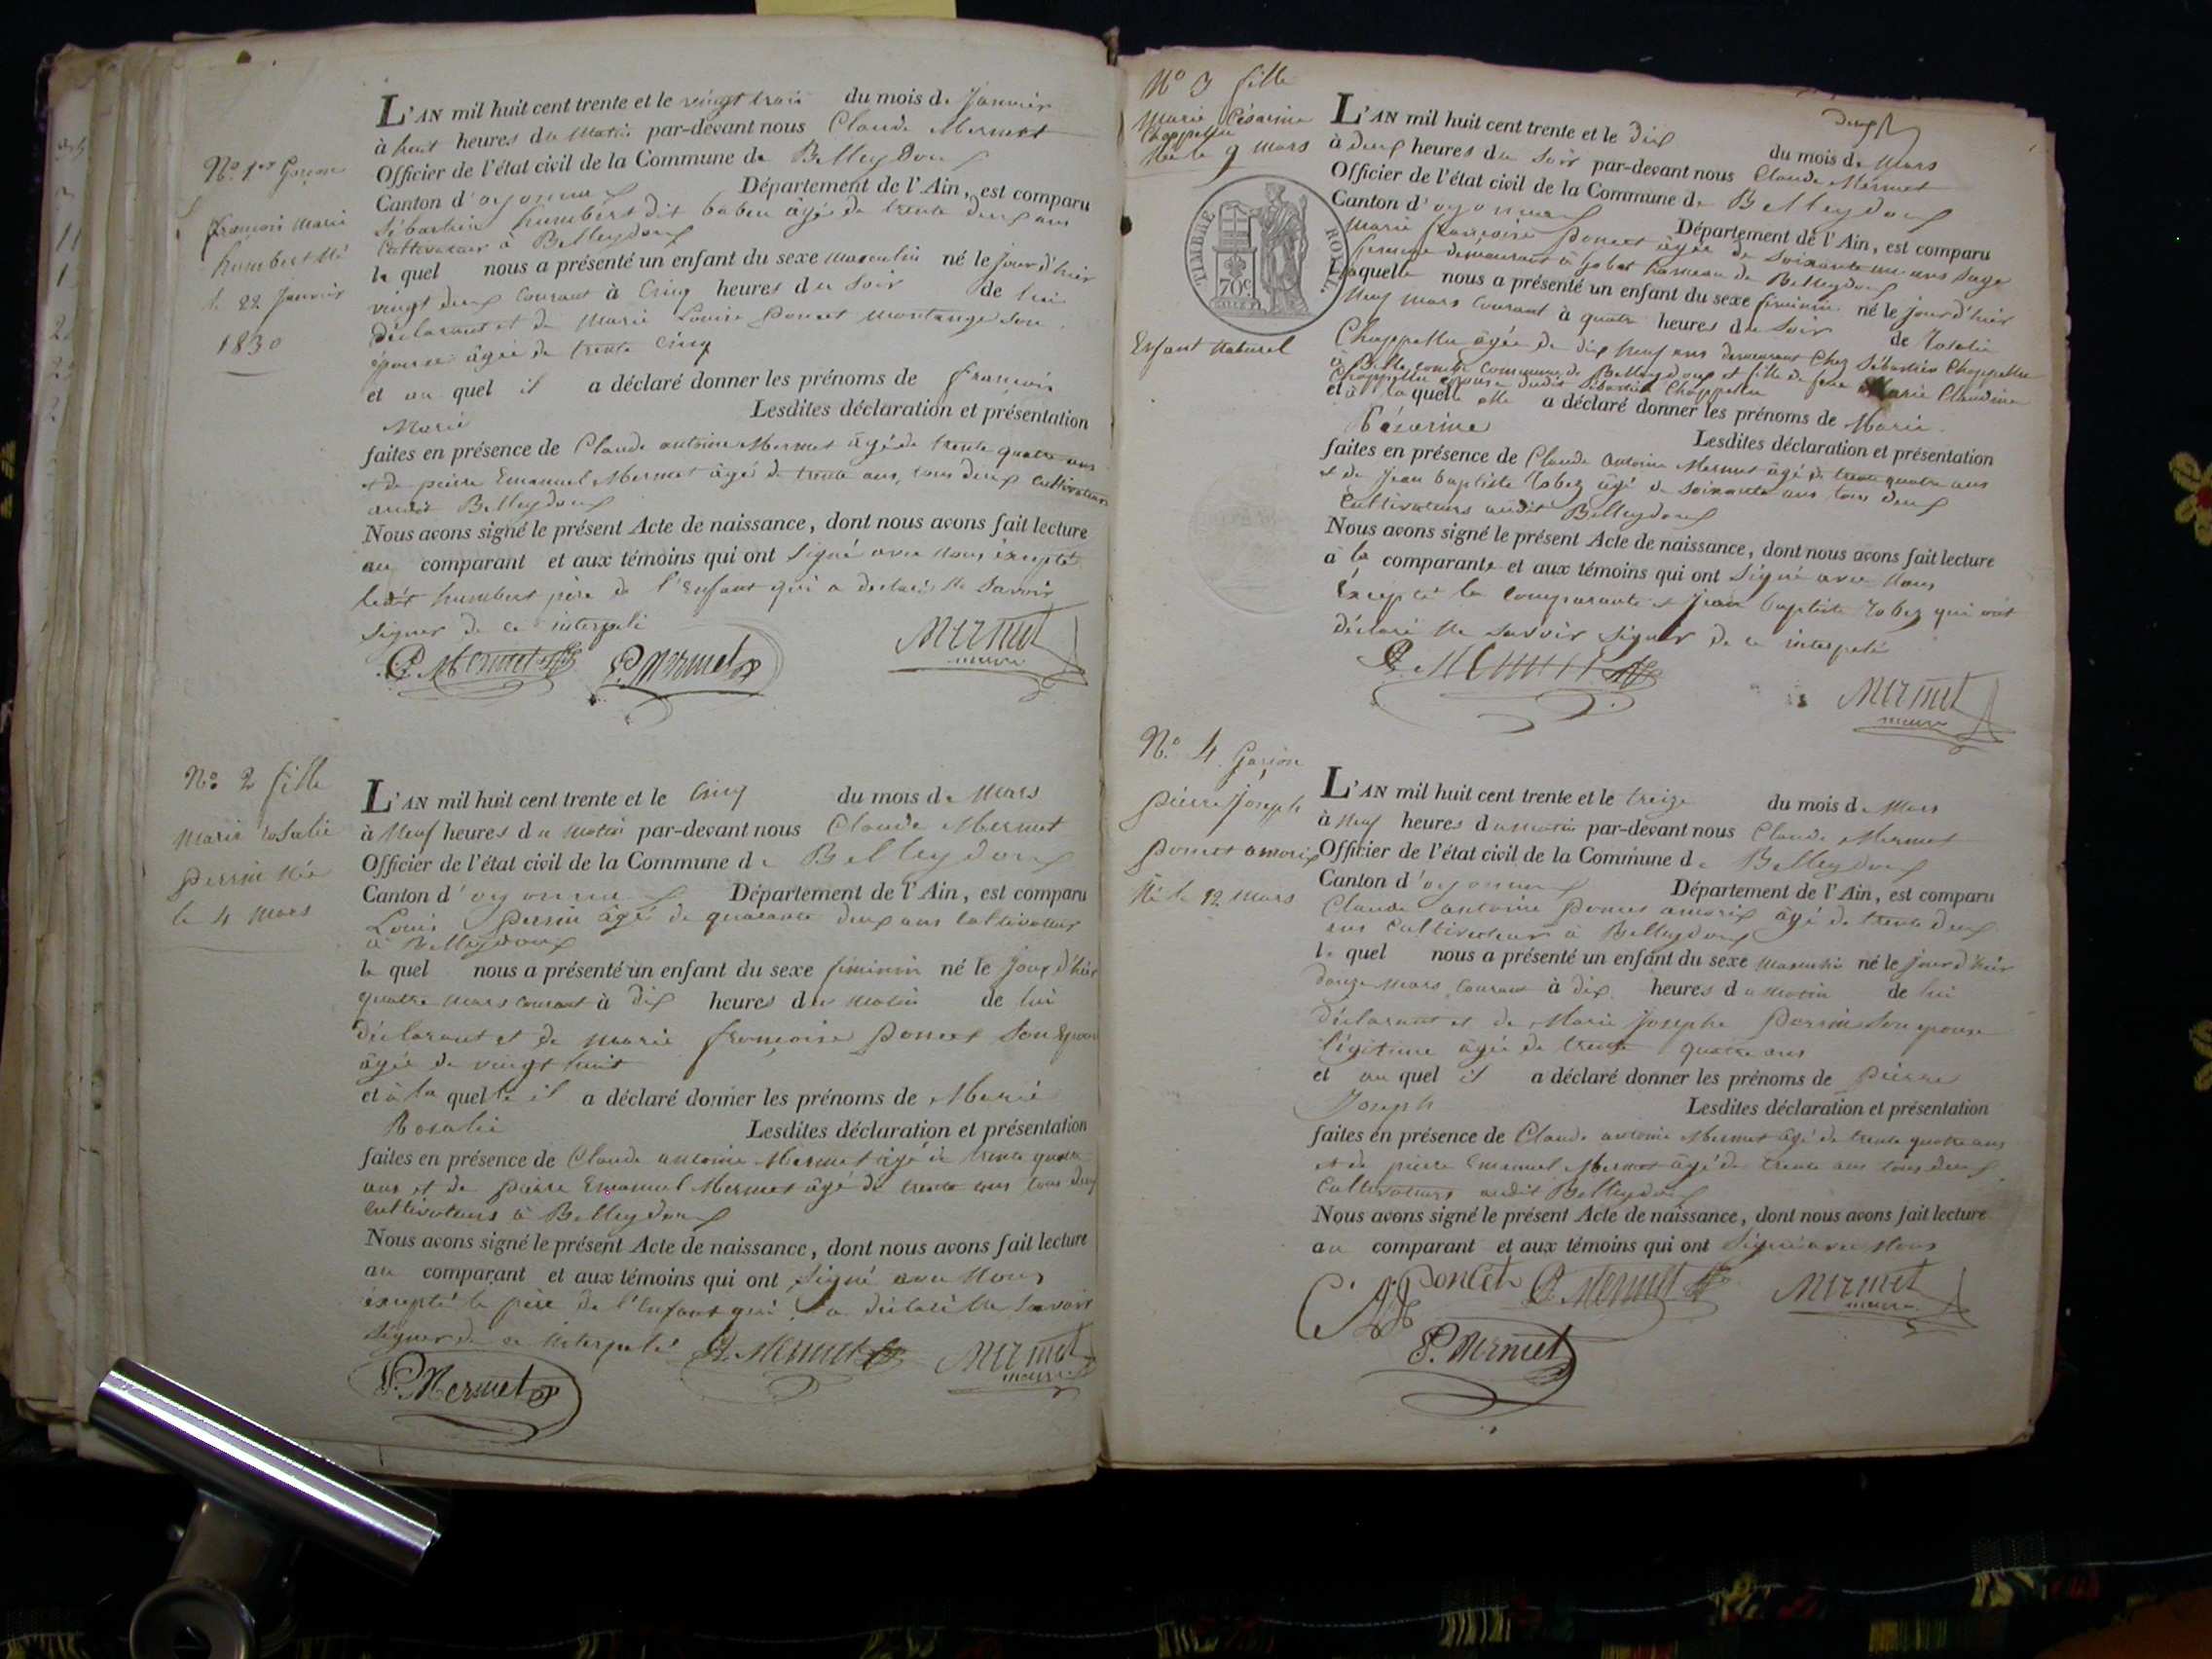 N.o 1er Garçon
françois Marie
humbert Né
le 22 Janvier
1830
L'AN mil huit cent trente et le vingt trois du mois de Janvier
à huit heures du Matin par-devant nous Claude Mermet
Officier de l'état civil de la Commune de Belleydoux
Canton d'oyonnax Département de l'Ain, est comparu
Sébastien humbert dit baben âgé de trente deux ans
Cultivateur à Belleydoux
le quel nous a présenté un enfant du sexe masculin né le jour d'hier
vingt deux Courant à Cinq heures du Soir de lui
déclarant et de Marie Louise Poncet montange Son
épouse âgée de trente Cinq
et au quel il a déclaré donner les prénoms de françois
Marie Lesdites déclaration et présentation
faites en présence de Claude antoine Mermet âgé de trente quatre ans
et de pierre Emanuel Mermet âgé de trente ans, tous deux Cultivateurs
audit Belleydoux
Nous avons signé le présent Acte de naissance, dont nous avons fait lecture
au comparant et aux témoins qui ont Signé avec Nous, éxcepté
ledit humbert père de l'Enfant qui a déclaré Ne Savoir
Signer de ce interpelé
C. A. Mermet P. Mermet Mermet
maire
N.o 2 fille
Marie rosalie
perrin Née
le 4 Mars
L'AN mil huit cent trente et le Cinq du mois de Mars
à Neuf heures du Matin par-devant nous Claude Mermet
Officier de l'état civil de la Commune de Belleydoux
Canton d'oyonnax Département de l'Ain, est comparu
Louis Perrin âgé de quarante deux ans Cultivateur
à Belleydoux
le quel nous a présenté un enfant du sexe féminin né le Jour d'hier
quatre Mars Courant à dix heures du Matin de lui
déclarant et de Marie françoise Poncet Son Epouse
âgée de vingt huit
et à la quelle il a déclaré donner les prénoms de Marie
Rosalie Lesdites déclaration et présentation
faites en présence de Claude antoine Mermet âgé de trente quatre
ans et de pierre Emanuel Mermet âgé de trente ans tous deux
Cultivateurs à Belleydoux
Nous avons signé le présent Acte de naissance, dont nous avons fait lecture
au comparant et aux témoins qui ont Signé avec Nous
éxcepté le père de l'Enfant qui a déclaré Ne Savoir
Signer de ce interpelé C. A. Mermet Mermet
maire
P. Mermet
N.o 3 fille
Marie Césarine
Chappellu
Née le 9 Mars
TIMBRE ROYAL
70c
Enfant Naturel
deux
L'AN mil huit cent trente et le dix du mois de Mars
à deux heures du Soir par-devant nous Claude Mermet
Officier de l'état civil de la Commune de Belleydoux
Canton d'oyonnax Département de l'Ain, est comparu
Marie françoise Poncet âgée de Soixante un ans Sage
femme demeurant à hameau de Belleydoux
Laquelle nous a présenté un enfant du sexe féminin né le jour d'hier
Neuf Mars Courant à quatre heures du Soir de rosalie
Chappellu âgée de dix Neuf ans demeurant Chez Sébastien Chappellu
à Bellecombe Commune de Belleydoux et fille de feue Marie Claudine
Chappellu épouse dudit Sébastien Chappellu
et à la quelle elle a déclaré donner les prénoms de Marie
Césarine Lesdites déclaration et présentation
faites en présence de Claude Antoine Mermet âgé de trente quatre ans
et de Jean baptiste robez âgé de Soixante ans tous deux
Cultivateurs audit Belleydoux
Nous avons signé le présent Acte de naissance, dont nous avons fait lecture
à la comparante et aux témoins qui ont Signé avec Nous
Excepté la Comparante et Jean baptiste robez qui ont
déclaré Ne Savoir Signer de ce interpelé
C. A. Mermet
Mermet
maire
N.o 4 Garçon
pierre Joseph
Poncet amorix
Né le 12 Mars
L'AN mil huit cent trente et le treize du mois de Mars
à Neuf heures du Matin par-devant nous Claude Mermet
Officier de l'état civil de la Commune de Belleydoux
Canton d'oyonnax Département de l'Ain, est comparu
Claude antoine Poncet amorix âgé de trente deux
ans Cultivateur à Belleydoux
le quel nous a présenté un enfant du sexe Masculin né le jour d'hier
douze Mars Courant à dix heures du Matin de lui
déclarant et de Marie Josephe Perrin Son épouse
légitime âgée de trente quatre ans
et au quel il a déclaré donner les prénoms de pierre
Joseph Lesdites déclaration et présentation
faites en présence de Claude antoine Mermet âgé de trente quatre ans
et de pierre Emanuel Mermet âgé de trente ans tous deux
Cultivateurs audit Belleydoux
Nous avons signé le présent Acte de naissance, dont nous avons fait lecture
au comparant et aux témoins qui ont Signé avec Nous
C. A. Poncet C. A. Mermet Mermet
maire
P. Mermet